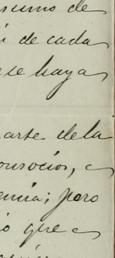 sumo de
i de cada
ese haya
arte dela
onsocios, e
encia; pero
ió que